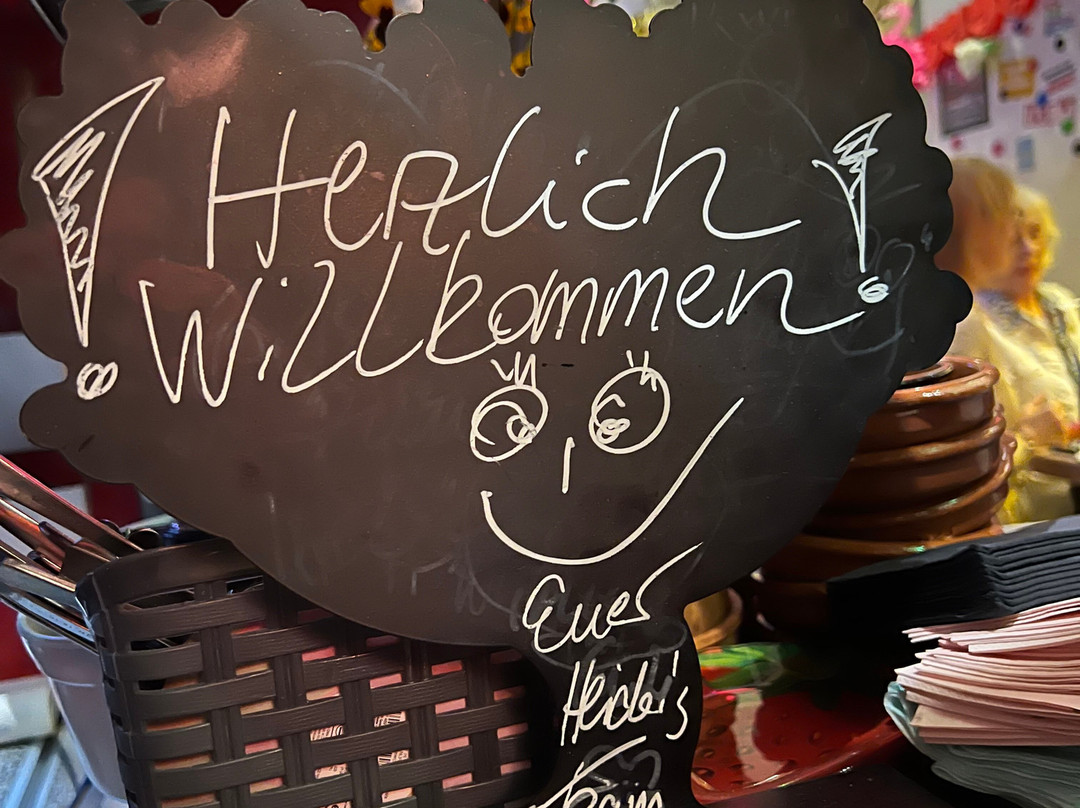 ! Herzlich !
Willkommen
Euer
Heidi's
Team